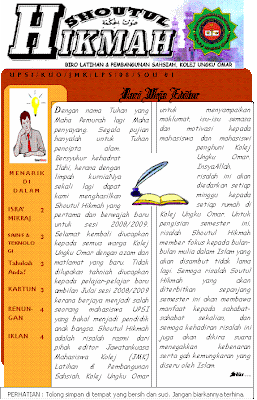 SHOUTUL
HIKMAH
BIRO LATIHAN & PEMBANGUNAN SAHSIAH, KOLEJ UNGKU OMAR
Dari Meja Editor
MENARIK
DI
DALAM
ISRA'
MIKRAJ
SAINS &
TEKNOLOGI
Tahukah
Anda?
KARTUN 3
RENUNGAN 4
IKLAN 4
Dengan nama Tuhan yang
Maha Pemurah lagi Maha
penyayang. Segala pujian
hanyalah untuk Tuhan
pencipta alam.
Bersyukur kehadrat
Ilahi, kerana dengan
limpah kurniaNya
sekali lagi dapat
kami menghasilkan
Shoutul Hikmah yang
pertama dan berwajah baru
untuk sesi 2008/2009.
Selamat kembali diucapkan
kepada semua warga Kolej
Ungku Omar dengan azam dan
matlamat yang baru. Tidak
dilupakan tahniah diucapkan
kepada pelajar-pelajar baru
ambilan Julai sesi 2008/2009
kerana berjaya menjadi salah
seorang mahasiswa UPSI
yang bakal menjadi pendidik
anak bangsa. Shoutul Hikmah
adalah risalah rasmi dari
pihak editor Jawatankuasa
Mahasiswa Kolej (JMK)
Latihan & Pembangunan
Sahsiah, Kolej Ungku Omar
untuk menyampaikan
maklumat, isu-isu semasa
dan motivasi kepada
mahasiswa dan mahasiswi
penghuni Kolej
Ungku Omar.
InsyaAllah,
risalah ini akan
diedarkan setiap
minggu kepada
setiap rumah di
Kolej Ungku Omar. Untuk
pengisian semester ini,
risalah Shoutul Hikmah
member fokus kepada bulan-
bulan mulia dalam Islam yang
akan disambut tidak lama
lagi. Semoga risalah Soutul
Hikmah yang akan
diterbitkan sepanjang
semester ini akan membawa
manfaat kepada sahabat-
sahabat sekalian, dan
semoga kehadiran risalah ini
juga akan dikira suara
menegakkan kebenaran
serta gah kemungkaran yang
diseru oleh Islam.
PERHATIAN : Tolong simpan di tempat yang bersih dan suci. Jangan biarkannya terhina.